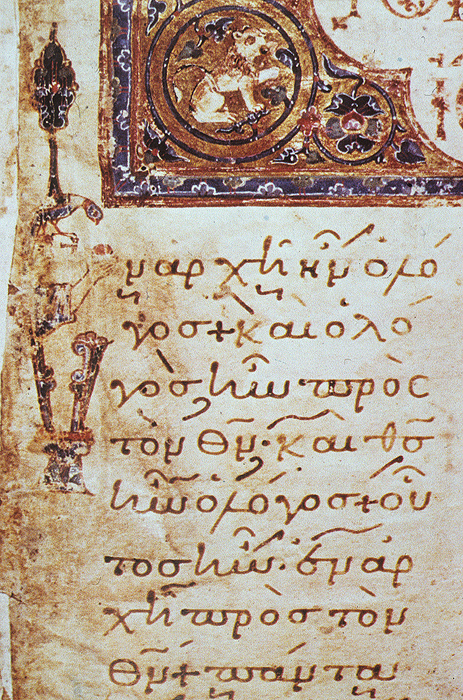 ν αρχῆ ἦν ὁ λό
γος + καὶ ὁ λό
γὸς ἦν · πρὸς
τὸν θ̅ν̅ · καὶ θ̅ς̅
ἦν ὁ λόγος + οὗ
τος ἦν · ἐν ἀρ
χῆ πρὸς τὸν
θ̅ν̅ + πάντα